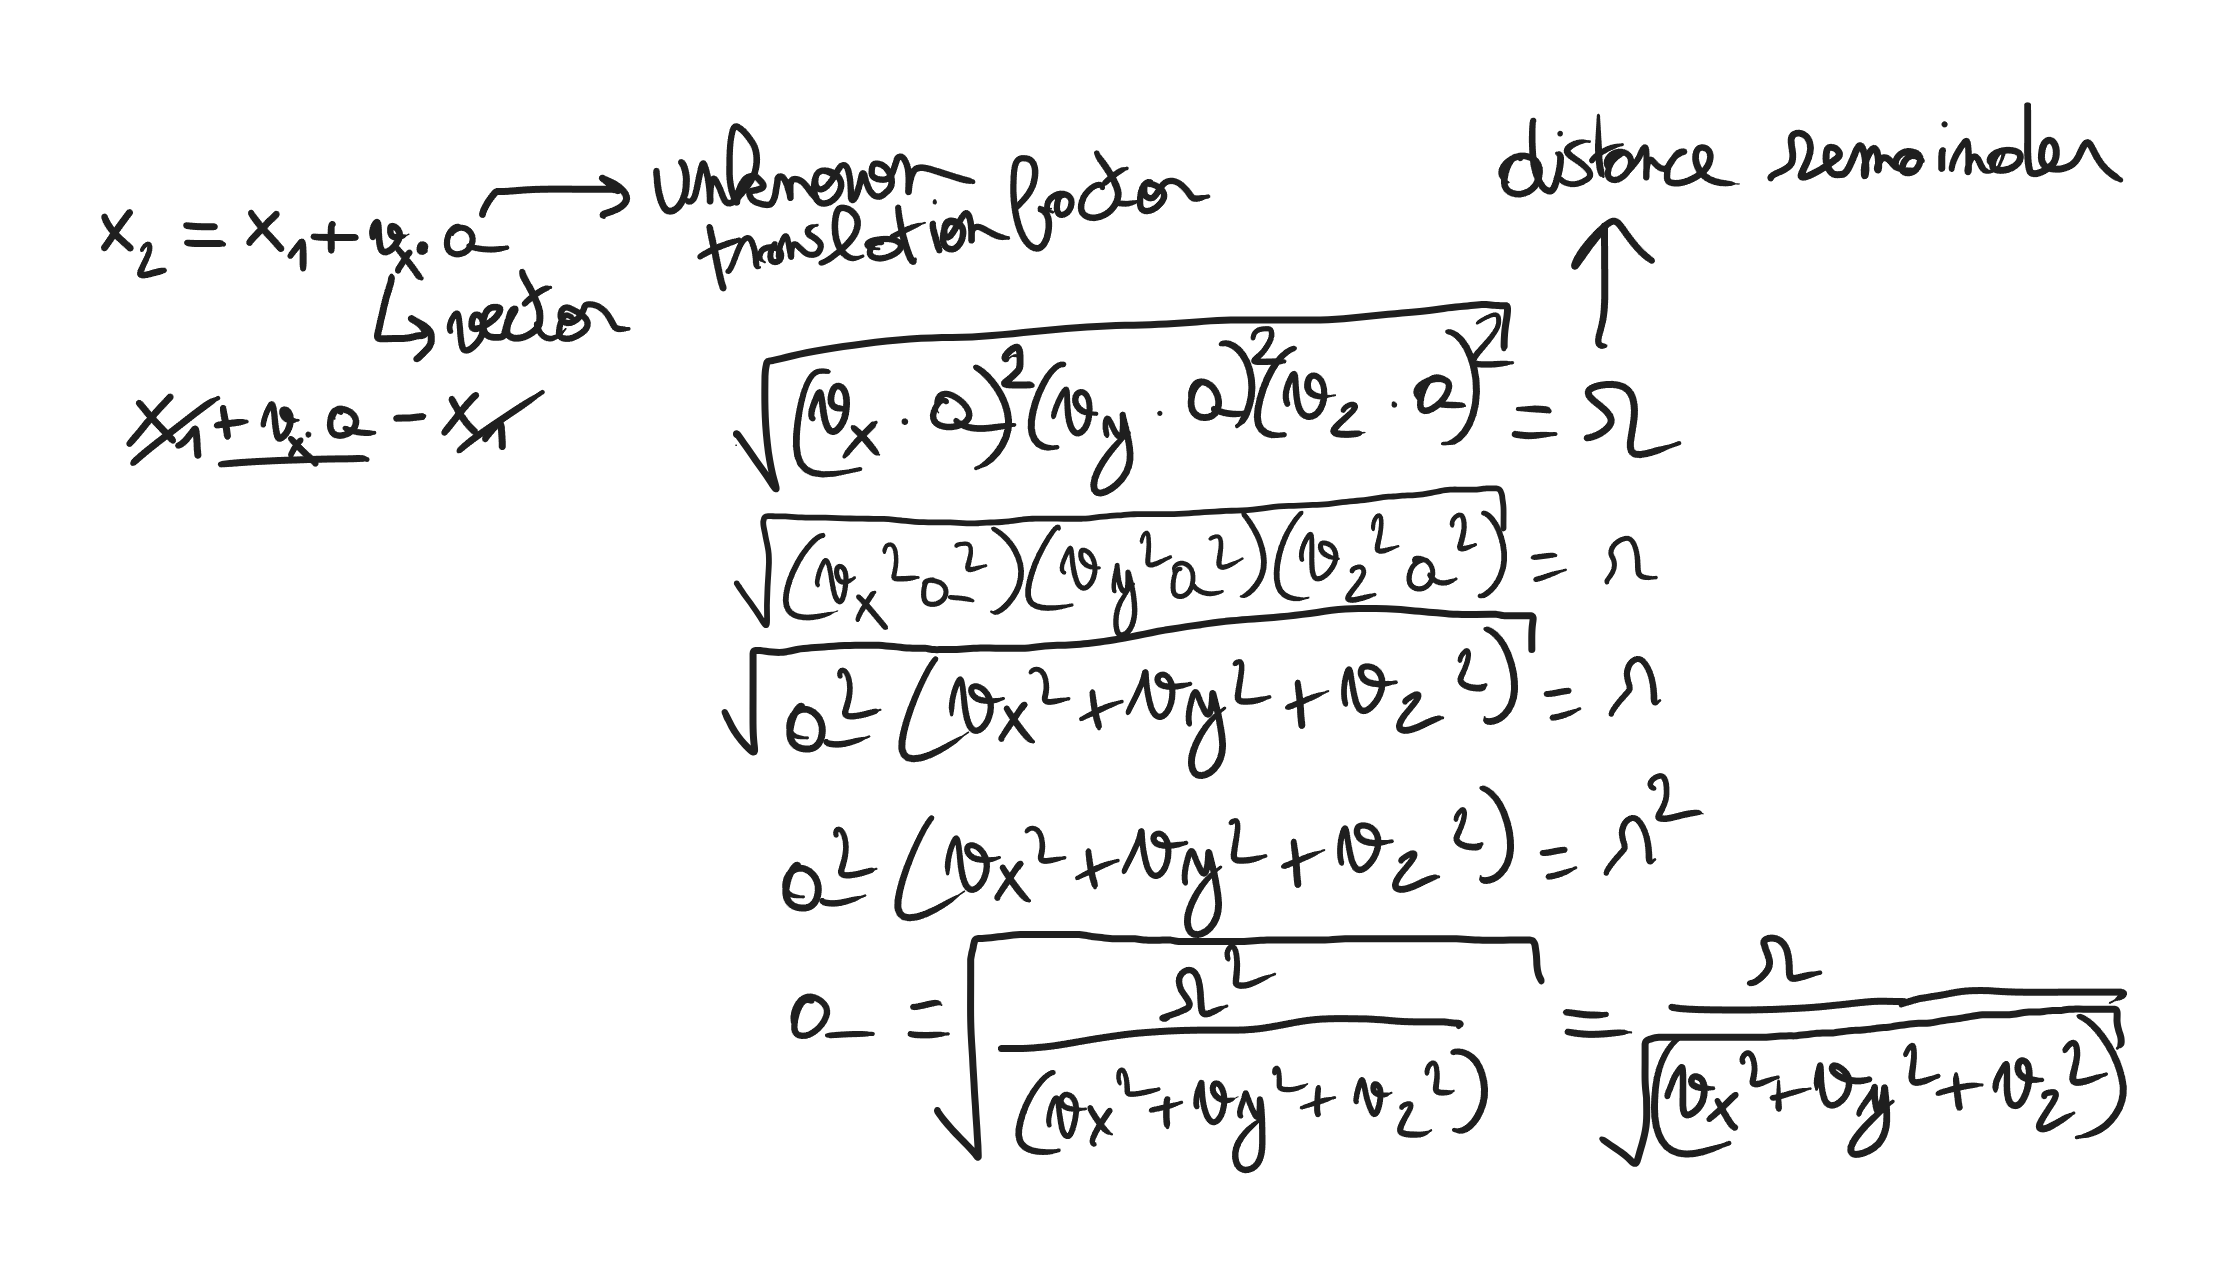 x₂ = x₁ + vₓ · a → unknown translation factor
↳ vector
x₁ + vₓ · a − x₁
distance remainder
↑
√((vₓ · a)² (v_y · a)² (v_z · a)²) = r
√((vₓ² a²)(v_y² a²)(v_z² a²)) = r
√(a² (vₓ² + v_y² + v_z²)) = r
a² (vₓ² + v_y² + v_z²) = r²
a = √(r² / (vₓ² + v_y² + v_z²)) = r / √(vₓ² + v_y² + v_z²)